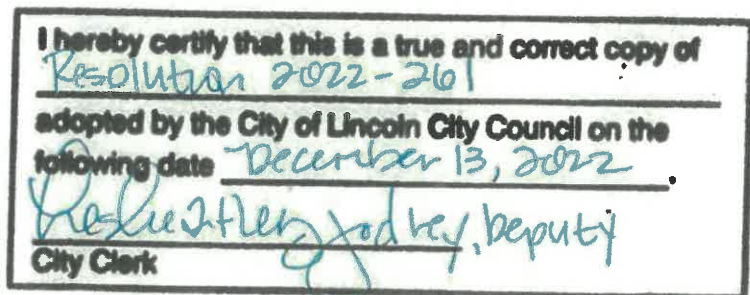 I hereby certify that this is a true and correct copy of
Resolution 2022-261
adopted by the City of Lincoln City Council on the
following date December 13, 2022.
deputy
City Clerk